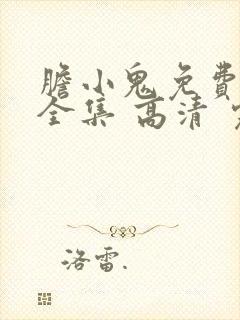 膽小鬼免費
全集 高清
洛雷.